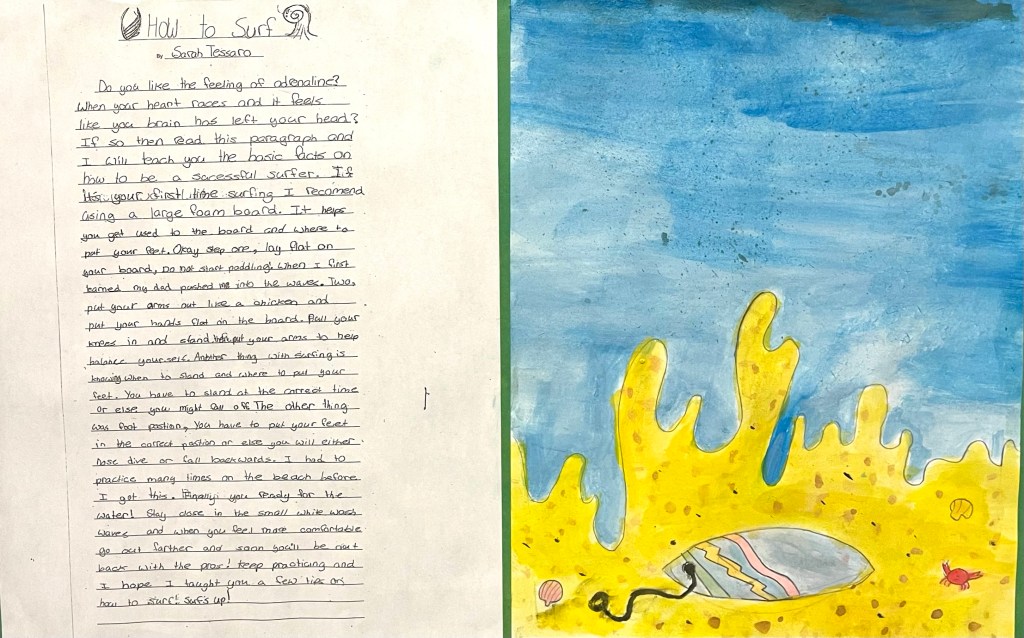 How to Surf
By Sarah Tessaro
Do you like the feeling of adrenaline?
When your heart races and it feels
like you brain has left your head?
If so then read this paragraph and
I will teach you the basic facts on
how to be a sucessful surfer. If
its your first time surfing I recomend
using a large foam board. It helps
you get used to the board and where to
put your feet. Okay step one, lay flat on
your board, Do not start paddling. When I first
learned my dad pushed me into the waves. Two,
put your arms out like a chicken and
put your hands flat on the board. Pull your
knees in and stand then put your arms to help
balance yourself. Another thing with surfing is
knowing when to stand and where to put your
feet. You have to stand at the correct time
or else you might fall off The other thing
was foot postion, You have to put your feet
in the correct postion or else you will either
nose dive or fall backwards. I had to
practice many times on the beach before
I got this. Finally, you ready for the
water! Stay close in the small white wash
waves and when you feel more comfortable
go out farther and soon you'll be out
back with the pros! Keep practicing and
I hope I taught you a few tips on
how to surf! Surfs up!